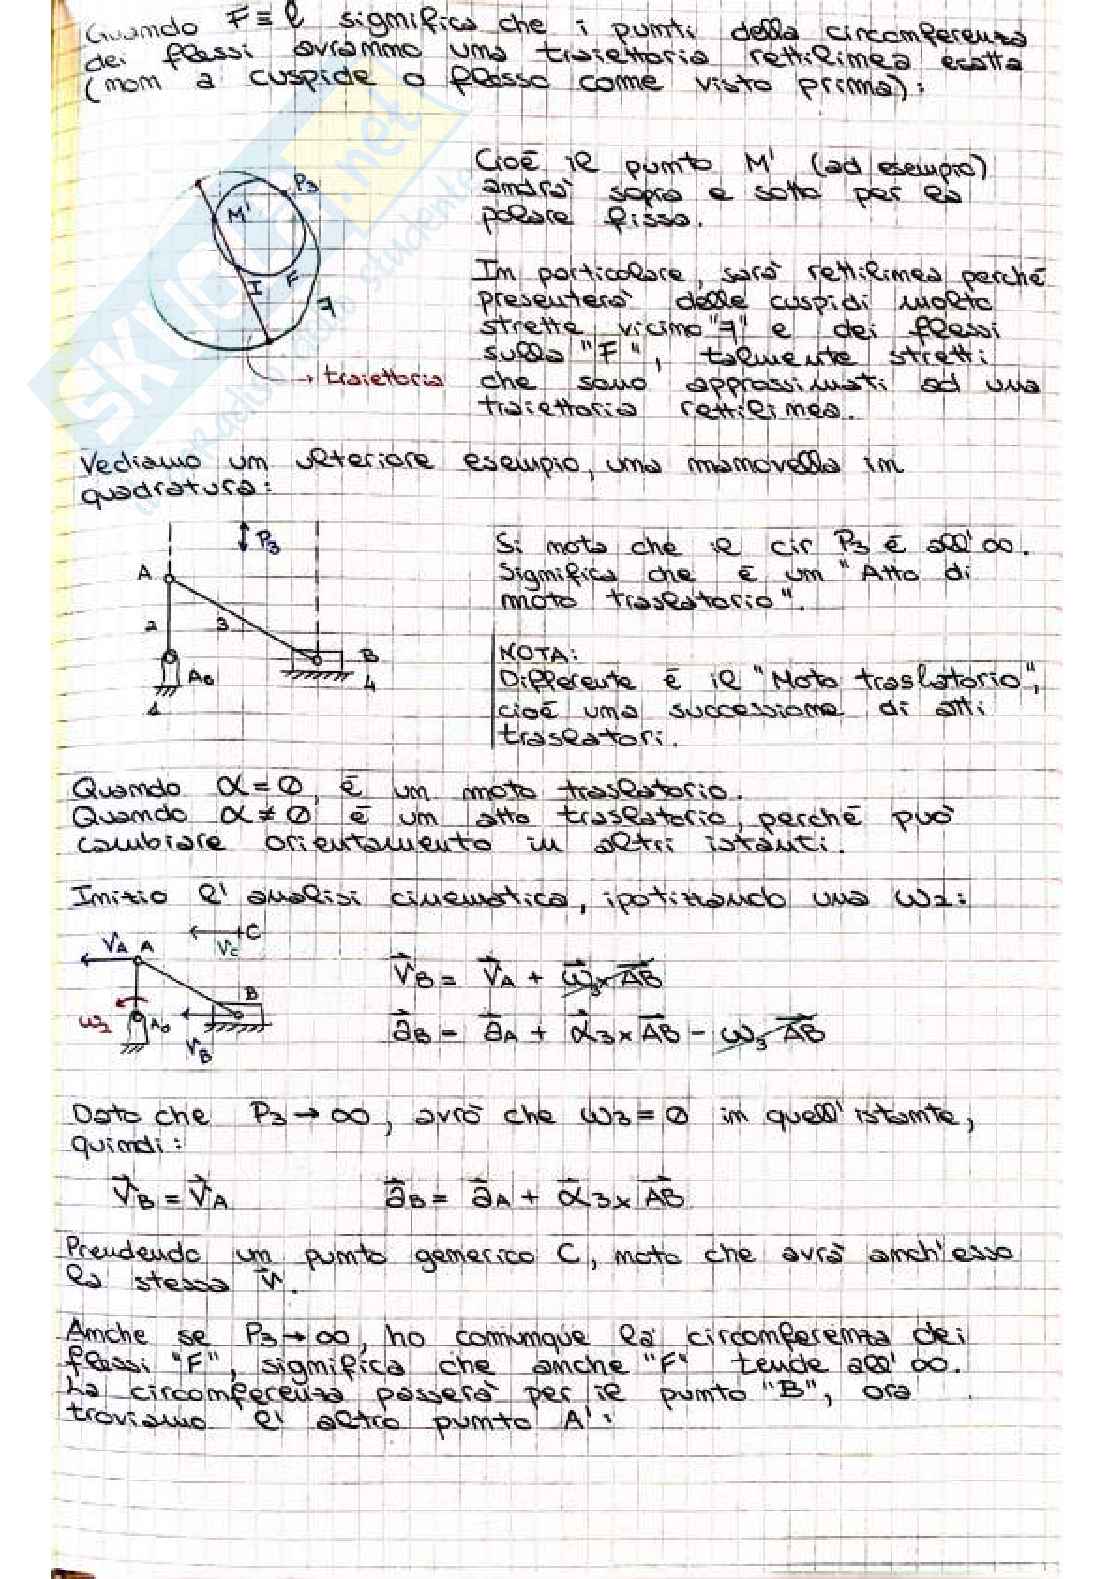 Quando F ≡ l significa che i punti della circonferenza
dei flessi avranno una traiettoria rettilinea esatta
(non a cuspide o flesso come visto prima):
Cioè il punto M' (ad esempio)
andrà sopra e sotto per la
polare fissa.
P3
M'
I
F
7
→ traiettoria
In particolare, sarà rettilinea perché
presenterà delle cuspidi molto
strette vicino "7" e dei flessi
sulla "F", talmente stretti
che sono approssimati ad una
traiettoria rettilinea.
SKUOLA.net
Vediamo un ulteriore esempio, una manovella in
quadratura:
P3
A
2
3
B
A0
4
1
Si nota che il cir P3 è all'∞.
Significa che è un "Atto di
moto traslatorio".
NOTA:
Differente è il "Moto traslatorio",
cioè una successione di atti
traslatori.
Quando α = 0, è un moto traslatorio.
Quando α ≠ 0 è un atto traslatorio, perché può
cambiare orientamento in altri istanti.
Inizio l'analisi cinematica, ipotizzando una ω2:
VA A
C
VC
B
ω2
A0
VB
V⃗B = V⃗A + ω⃗3 × A⃗B
a⃗B = a⃗A + α⃗3 × A⃗B - ω3 A⃗B
Dato che P3 → ∞, avrò che ω3 = 0 in quell'istante,
quindi:
V⃗B = V⃗A
a⃗B = a⃗A + α⃗3 × A⃗B
Prendendo un punto generico C, noto che avrà anch'esso
la stessa V⃗.
Anche se P3 → ∞, ho comunque la circonferenza dei
flessi "F", significa che anche "F" tende all'∞.
La circonferenza passerà per il punto "B", ora
troviamo l'altro punto A':